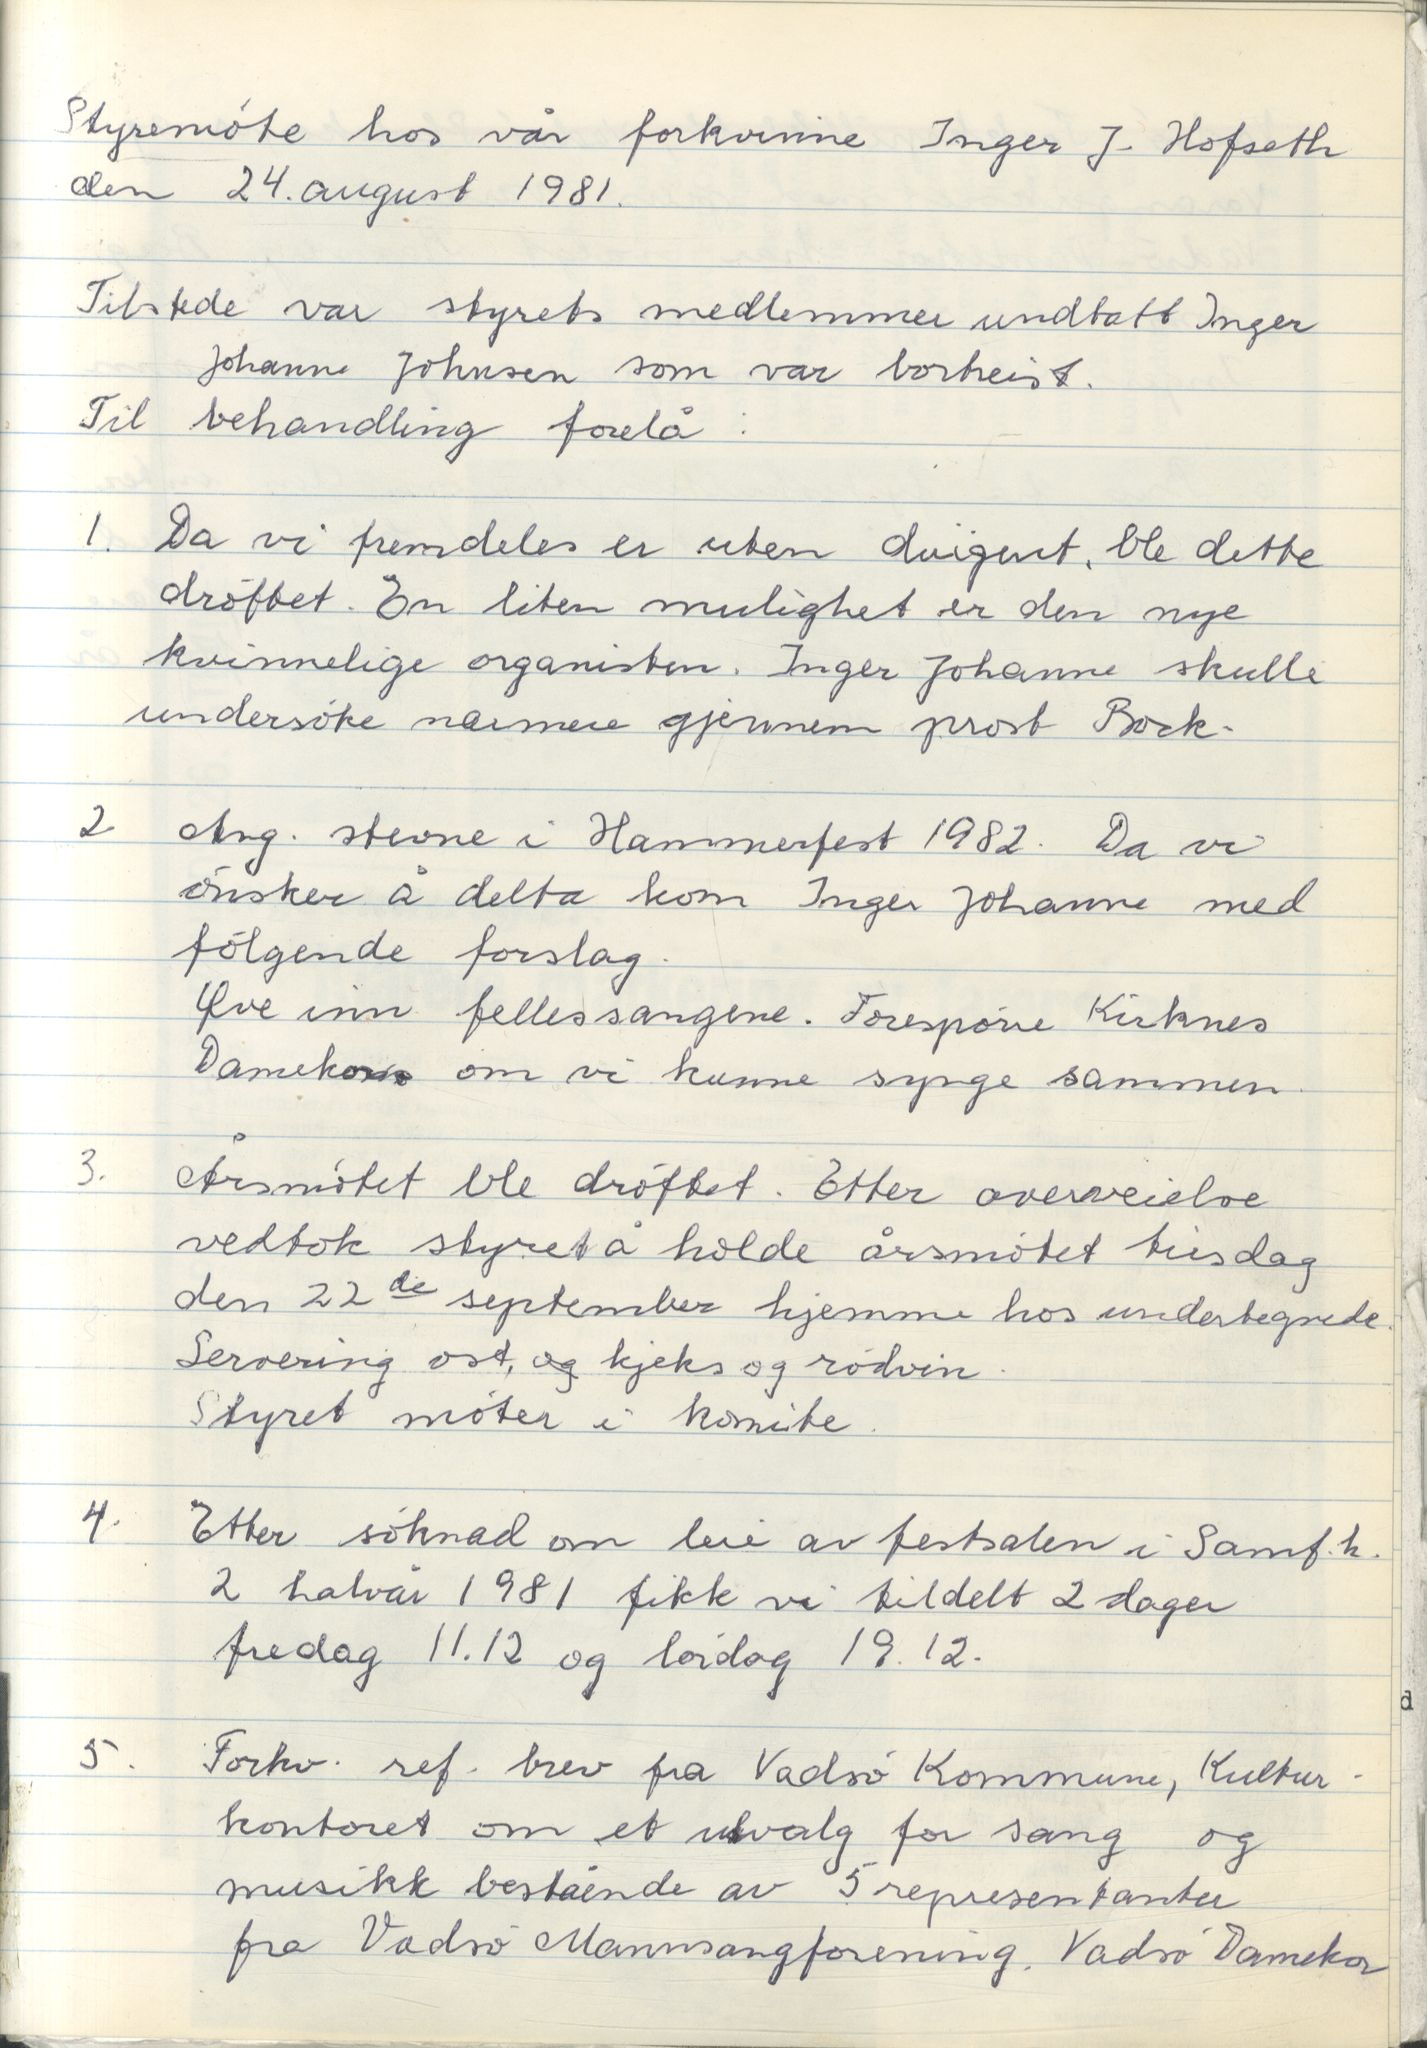 Styremöte hos vår forkvinne Inger J. Hofseth
den 24. august 1981.
Tilstede var styrets medlemmer undtatt Inger
Johanne Johnsen som var bortreist.
Til behandling forelå :
1. Da vi fremdeles er uten dirigent, ble dette
dröftet. En liten mulighet er den nye
kvinnelige organisten. Inger Johanne skulle
undersöke nærmere gjennem prost Bock.
2 Ang. stevne i Hammerfest 1982. Da vi
önsker å delta kom Inger Johanne med
fölgende forslag.
Øve inn fellessangene. Forespörre Kirknes
Damekor om vi kunne synge sammen.
3. Årsmötet ble dröftet. Etter overveielse
vedtok styret å holde årsmötet tirsdag
den 22de september hjemme hos undertegnede.
Servering ost, og kjeks og rödvin.
Styret möter i komite.
4. Etter söknad om leie av festsalen i Samf.h.
2 halvår 1981 fikk vi tildelt 2 dager
fredag 11.12 og lördag 19.12.
5. Forkv. ref. brev fra Vadsö Kommune, Kultur-
kontoret om et utvalg for sang og
musikk bestående av 5 representanter
fra Vadsö Mannsangforening, Vadsö Damekor
d